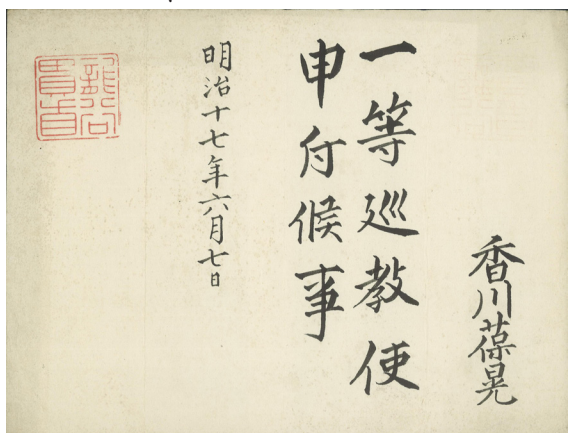 香川葆晃
一等巡教使
申付候事
明治十七年六月七日